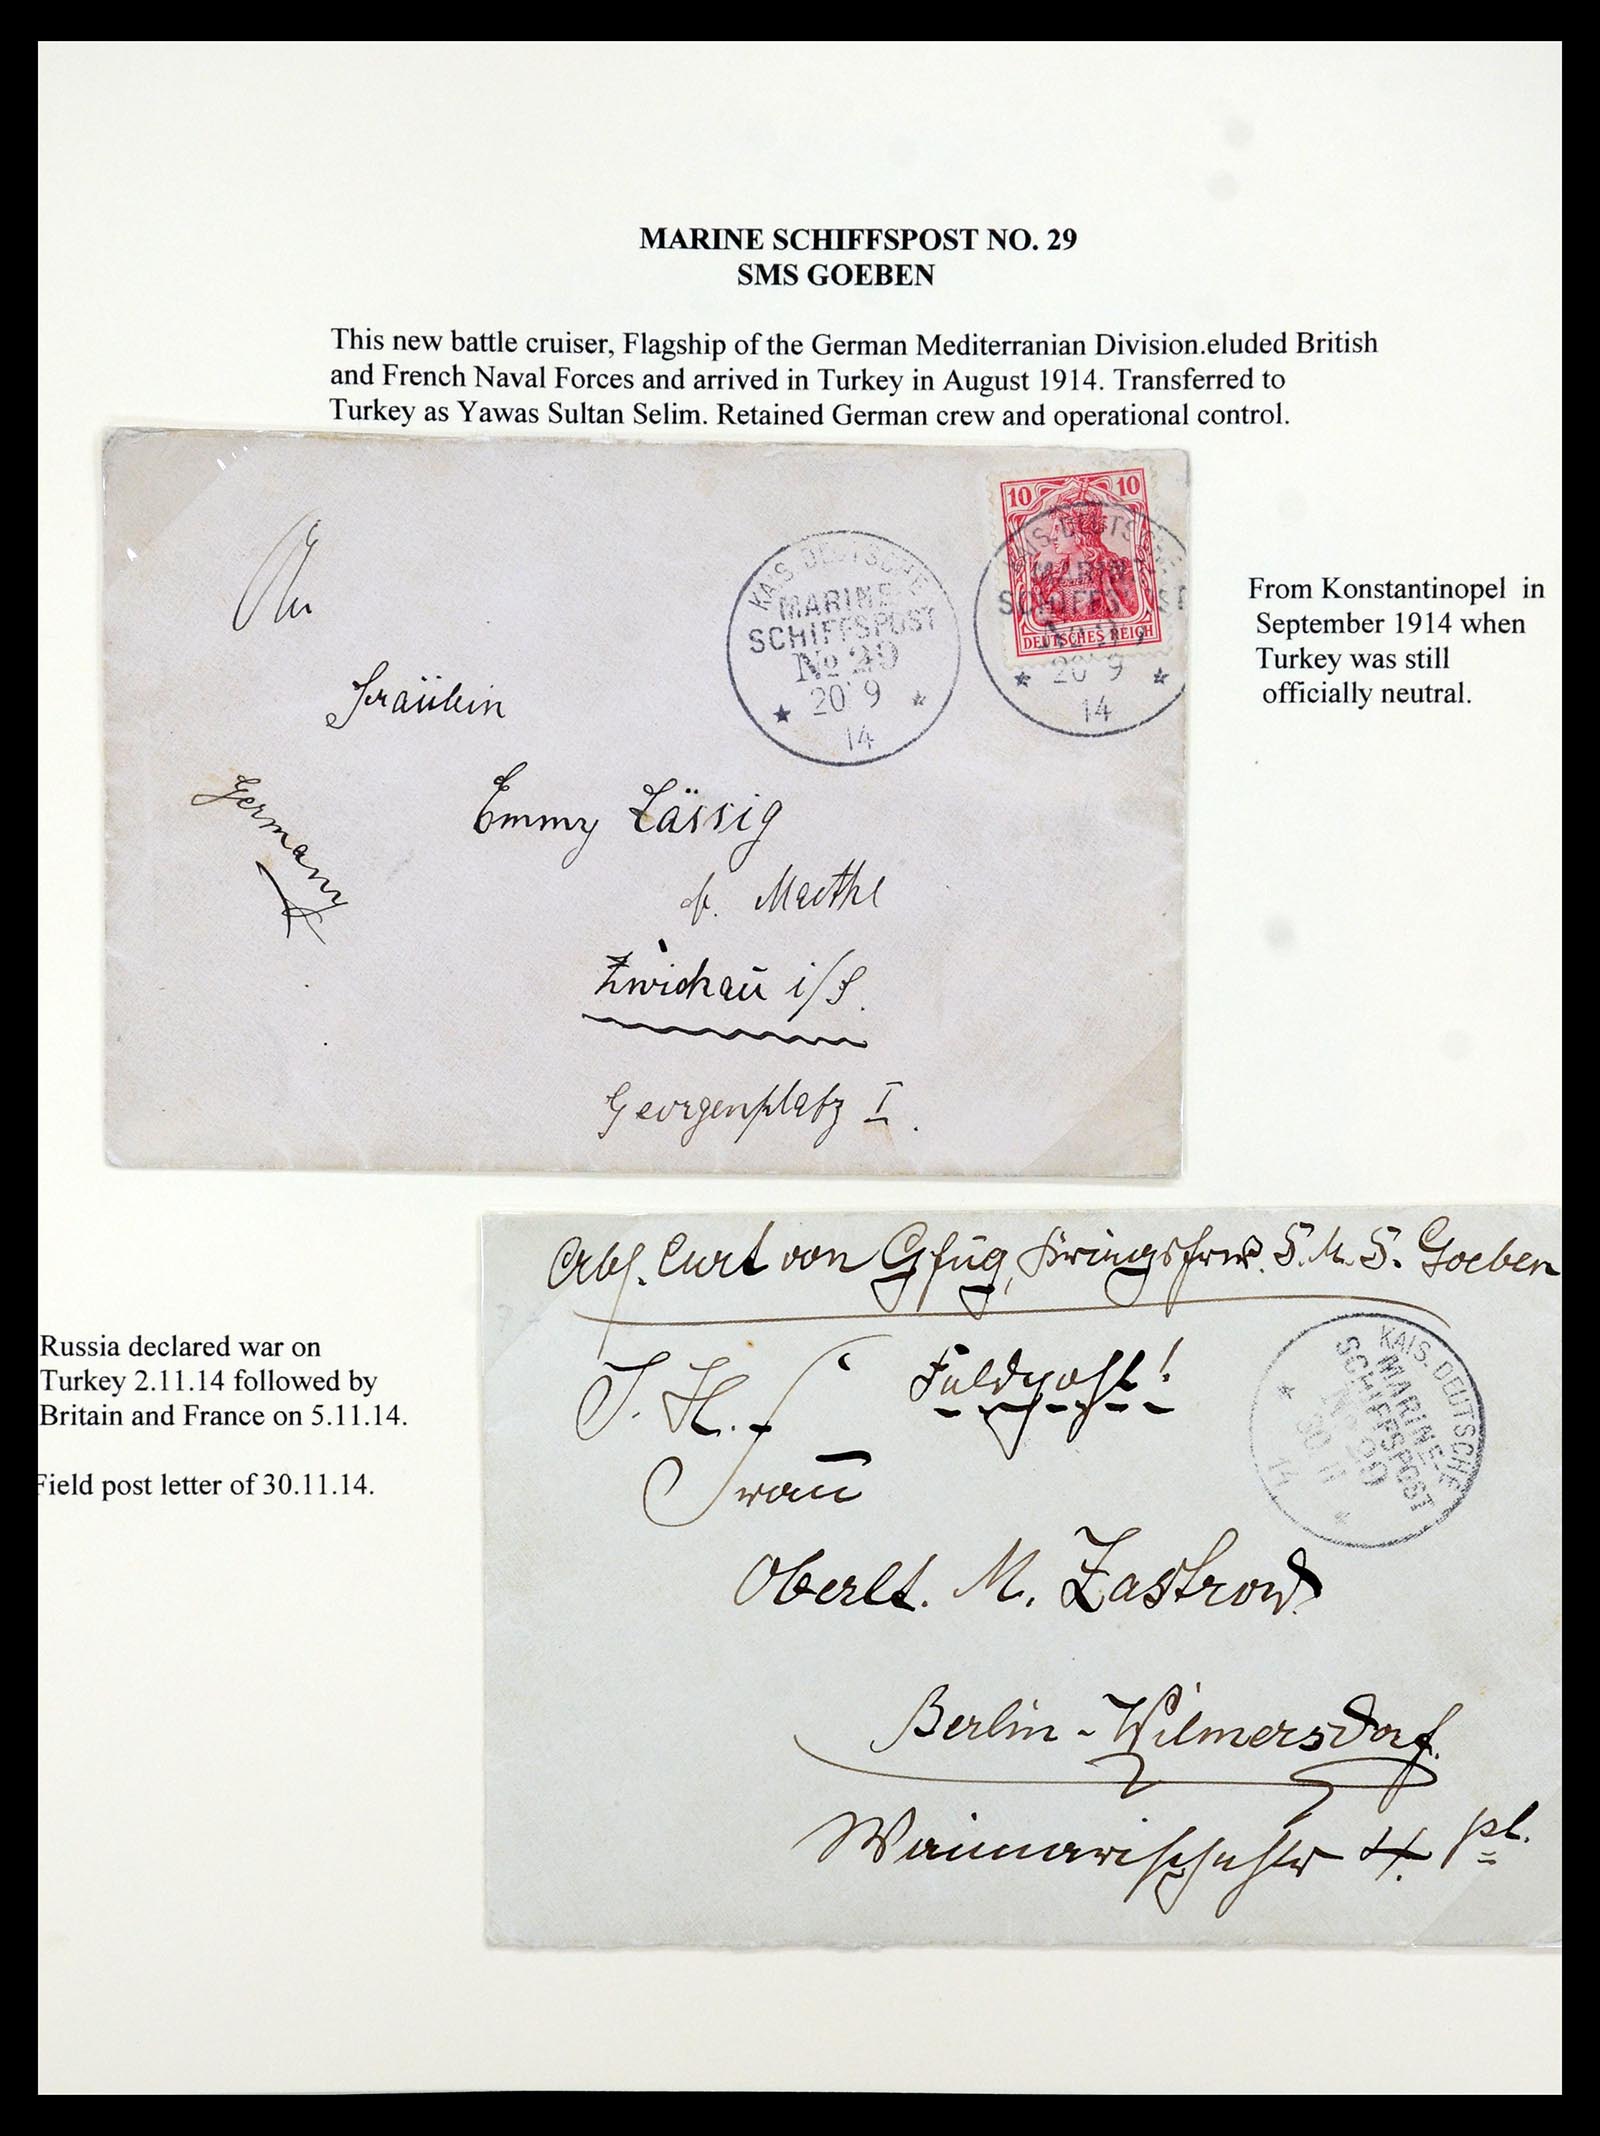 MARINE SCHIFFSPOST NO. 29
SMS GOEBEN
This new battle cruiser, Flagship of the German Mediterranian Division.eluded British
and French Naval Forces and arrived in Turkey in August 1914. Transferred to
Turkey as Yawas Sultan Selim. Retained German crew and operational control.
10 10
DEUTSCHES REICH
KAIS. DEUTSCHE
MARINE-
SCHIFFSPOST
No 29
20 9
14
KAIS. DEUTSCHE
MARINE-
SCHIFFSPOST
No 29
20 9
14
From Konstantinopel in
September 1914 when
Turkey was still
officially neutral.
An
Fräulein
Germany
Emmy Lässig
b. Maethe
Zwickau i/S.
Georgenplatz I.
Russia declared war on
Turkey 2.11.14 followed by
Britain and France on 5.11.14.
Field post letter of 30.11.14.
Abs. Curt von Gfug, S.M.S. Goeben
Feldpost!
KAIS. DEUTSCHE
MARINE-
SCHIFFSPOST
No 29
30 11
14
I. H.
Frau
Oberlt. M. Zastrow
Berlin-Wilmersdorf.
Waimarischestr 4. pt.